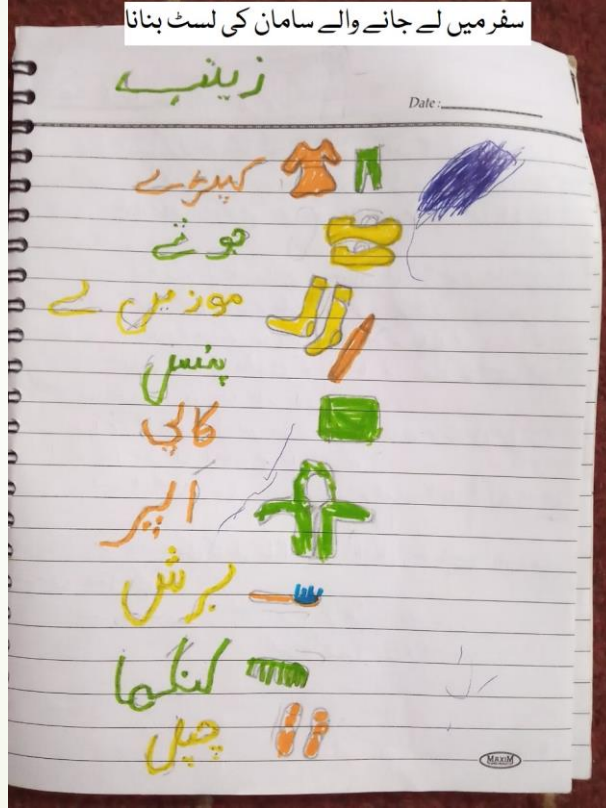 سفر میں لے جانے والے سامان کی لسٹ بنانا
زینب
Date:
کپڑے
جوتے
موزمیں لے
پنسل
کاپی
اَپر
برش
کنگھا
چپل
MAXIM